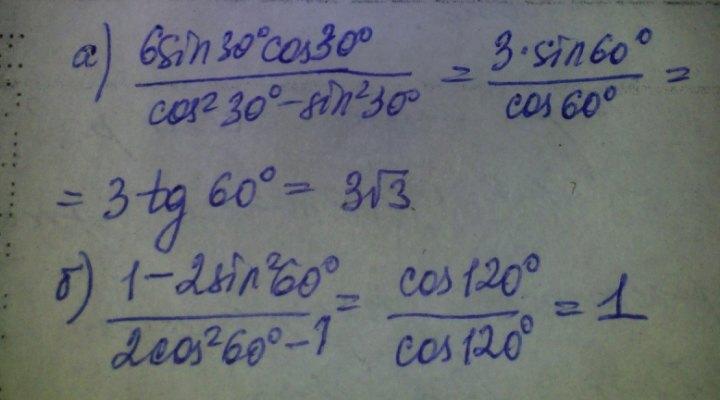 а) 6sin30°cos30° / cos²30° - sin²30° = 3·sin60° / cos60° =
= 3 tg 60° = 3√3
б) 1-2sin²60° / 2cos²60°-1 = cos120° / cos120° = 1